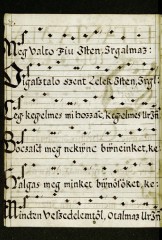 Meg valto Fiu Isten, Irgalmaz:
Vigasztalo szent Lelek Isten, Irgl:
Leg kegelmes mi hozzac, kegelmes Ur
Bocsasd meg nekunc buneinket, ke:
Halgas meg minket bunosoket, ke:
Minden veszedelemtol, Otalmaz Ur